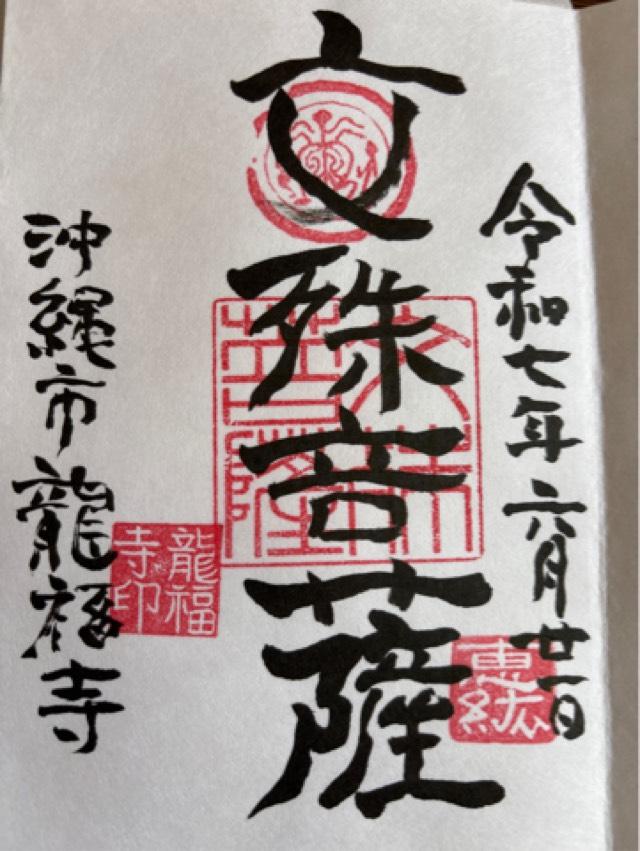 令和七年六月廿一日
文殊菩薩
沖縄市龍福寺
文殊菩薩
龍福寺印